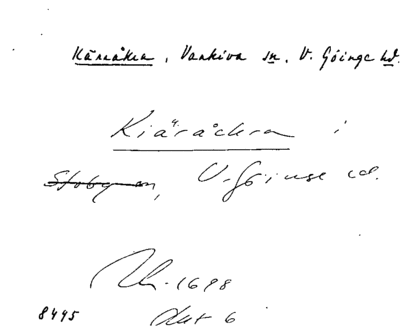 Kärråkra, Vankiva sn, V. Göinge hd.
Kiäråckra i
Stoby sn, V. Göinge hd.
1698
8445